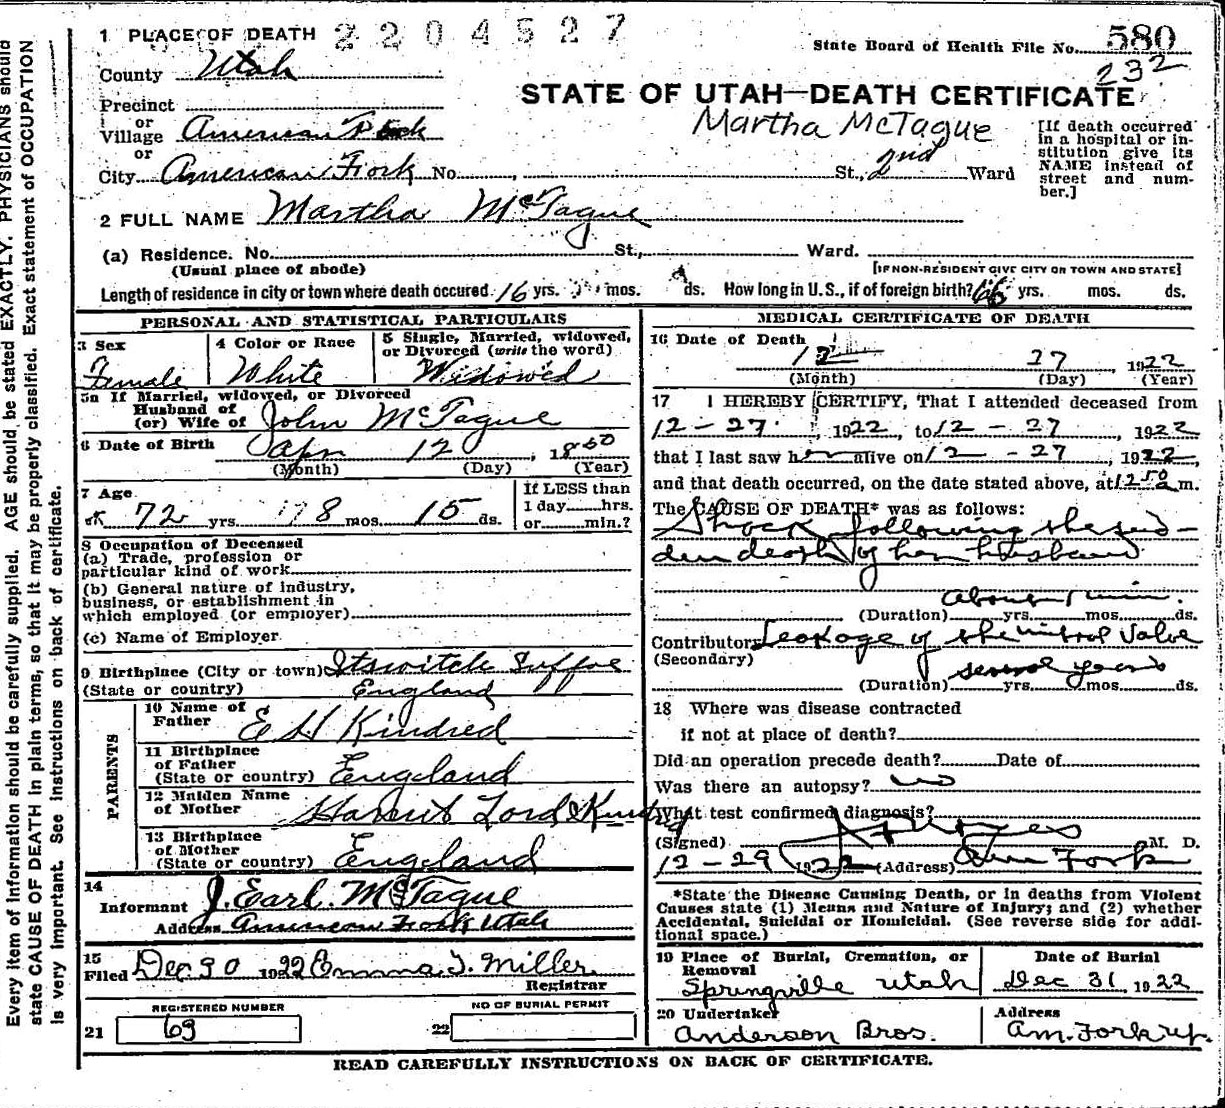 2204527
1 PLACE OF DEATH
State Board of Health File No. 580
232
County Utah
STATE OF UTAH—DEATH CERTIFICATE
Martha McTague
Precinct
or
Village American Fork
or
City American Fork No. , St., 2nd Ward
[If death occurred
in a hospital or in-
stitution give its
NAME instead of
street and num-
ber.]
2 FULL NAME Martha McTague
(a) Residence. No. St., Ward.
(Usual place of abode)
[IF NON-RESIDENT GIVE CITY OR TOWN AND STATE]
Length of residence in city or town where death occured 16 yrs. mos. ds. How long in U.S., if of foreign birth? 66 yrs. mos. ds.
PERSONAL AND STATISTICAL PARTICULARS
3 Sex
Female
4 Color or Race
White
5 Single, Married, widowed,
or Divorced (write the word)
Widowed
5a If Married, widowed, or Divorced
Husband of
(or) Wife of John McTague
6 Date of Birth Apr 12, 1850
(Month) (Day) (Year)
7 Age
72 yrs. 8 mos. 15 ds.
If LESS than
1 day hrs.
or min.?
8 Occupation of Deceased
(a) Trade, profession or
particular kind of work
(b) General nature of industry,
business, or establishment in
which employed (or employer)
(c) Name of Employer
9 Birthplace (City or town) Itswitch Suffoe
(State or country) England
PARENTS
10 Name of
Father E H Kindred
11 Birthplace
of Father
(State or country) England
12 Maiden Name
of Mother Harriet Lord Kindred
13 Birthplace
of Mother
(State or country) England
14
Informant J. Earl McTague
Address American Fork Utah
15
Filed Dec 30 1922 Emma T. Miller
Registrar
REGISTERED NUMBER
21 69
NO OF BURIAL PERMIT
22
MEDICAL CERTIFICATE OF DEATH
16 Date of Death
12 27, 1922
(Month) (Day) (Year)
17 I HEREBY CERTIFY, That I attended deceased from
12-27, 1922, to 12-27, 1922
that I last saw her alive on 12-27, 1922,
and that death occurred, on the date stated above, at 12 50 a m.
The CAUSE OF DEATH* was as follows:
Shock following the sud-
den death of her husband
about 1 min.
(Duration) yrs. mos. ds.
Contributory Leakage of the mitral valve
(Secondary)
several years
(Duration) yrs. mos. ds.
18 Where was disease contracted
if not at place of death?
Did an operation precede death? Date of
Was there an autopsy? no
What test confirmed diagnosis?
(Signed) M. D.
12-29 1922 (Address) Am Fork
*State the Disease Causing Death, or in deaths from Violent
Causes state (1) Means and Nature of Injury; and (2) whether
Accidental, Suicidal or Homicidal. (See reverse side for addi-
tional space.)
19 Place of Burial, Cremation, or
Removal
Springville Utah
Date of Burial
Dec 31, 1922
20 Undertaker
Anderson Bros.
Address
Am. Fork Ut.
READ CAREFULLY INSTRUCTIONS ON BACK OF CERTIFICATE.
Every item of information should be carefully supplied. AGE should be stated EXACTLY. PHYSICIANS should
state CAUSE OF DEATH in plain terms, so that it may be properly classified. Exact statement of OCCUPATION
is very important. See instructions on back of certificate.